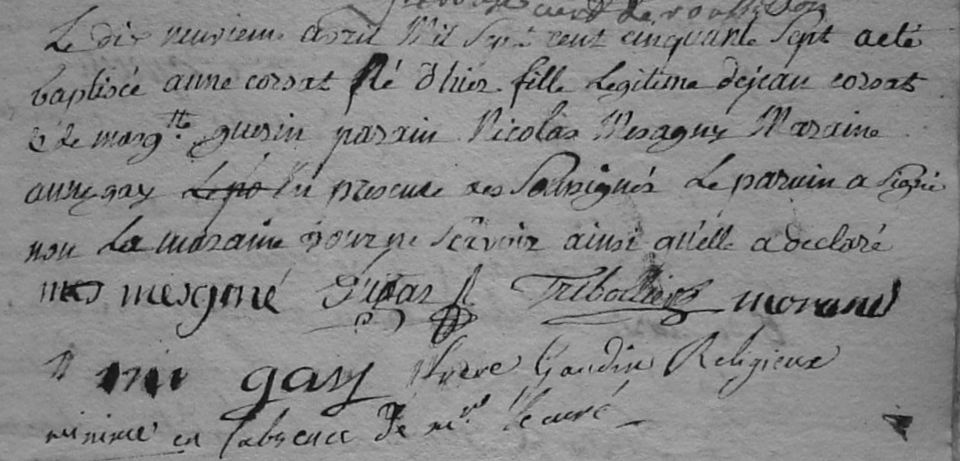 Le dix neuvieme avril Mil Sept cent cinquante Sept a eté
baptisée anne corsat Né d'hier fille Legitime de jean corsat
& de marg.tte guerin parain Nicolas Mesagny Maraine
anne gay En presence des Soussignés Le parain a Signé
non La maraine pour ne Scavoir ainsi qu'elle a declaré
mesgné Tribollier morand
gay frere Gaudin Religieux
minime en l'absence de mr. le curé